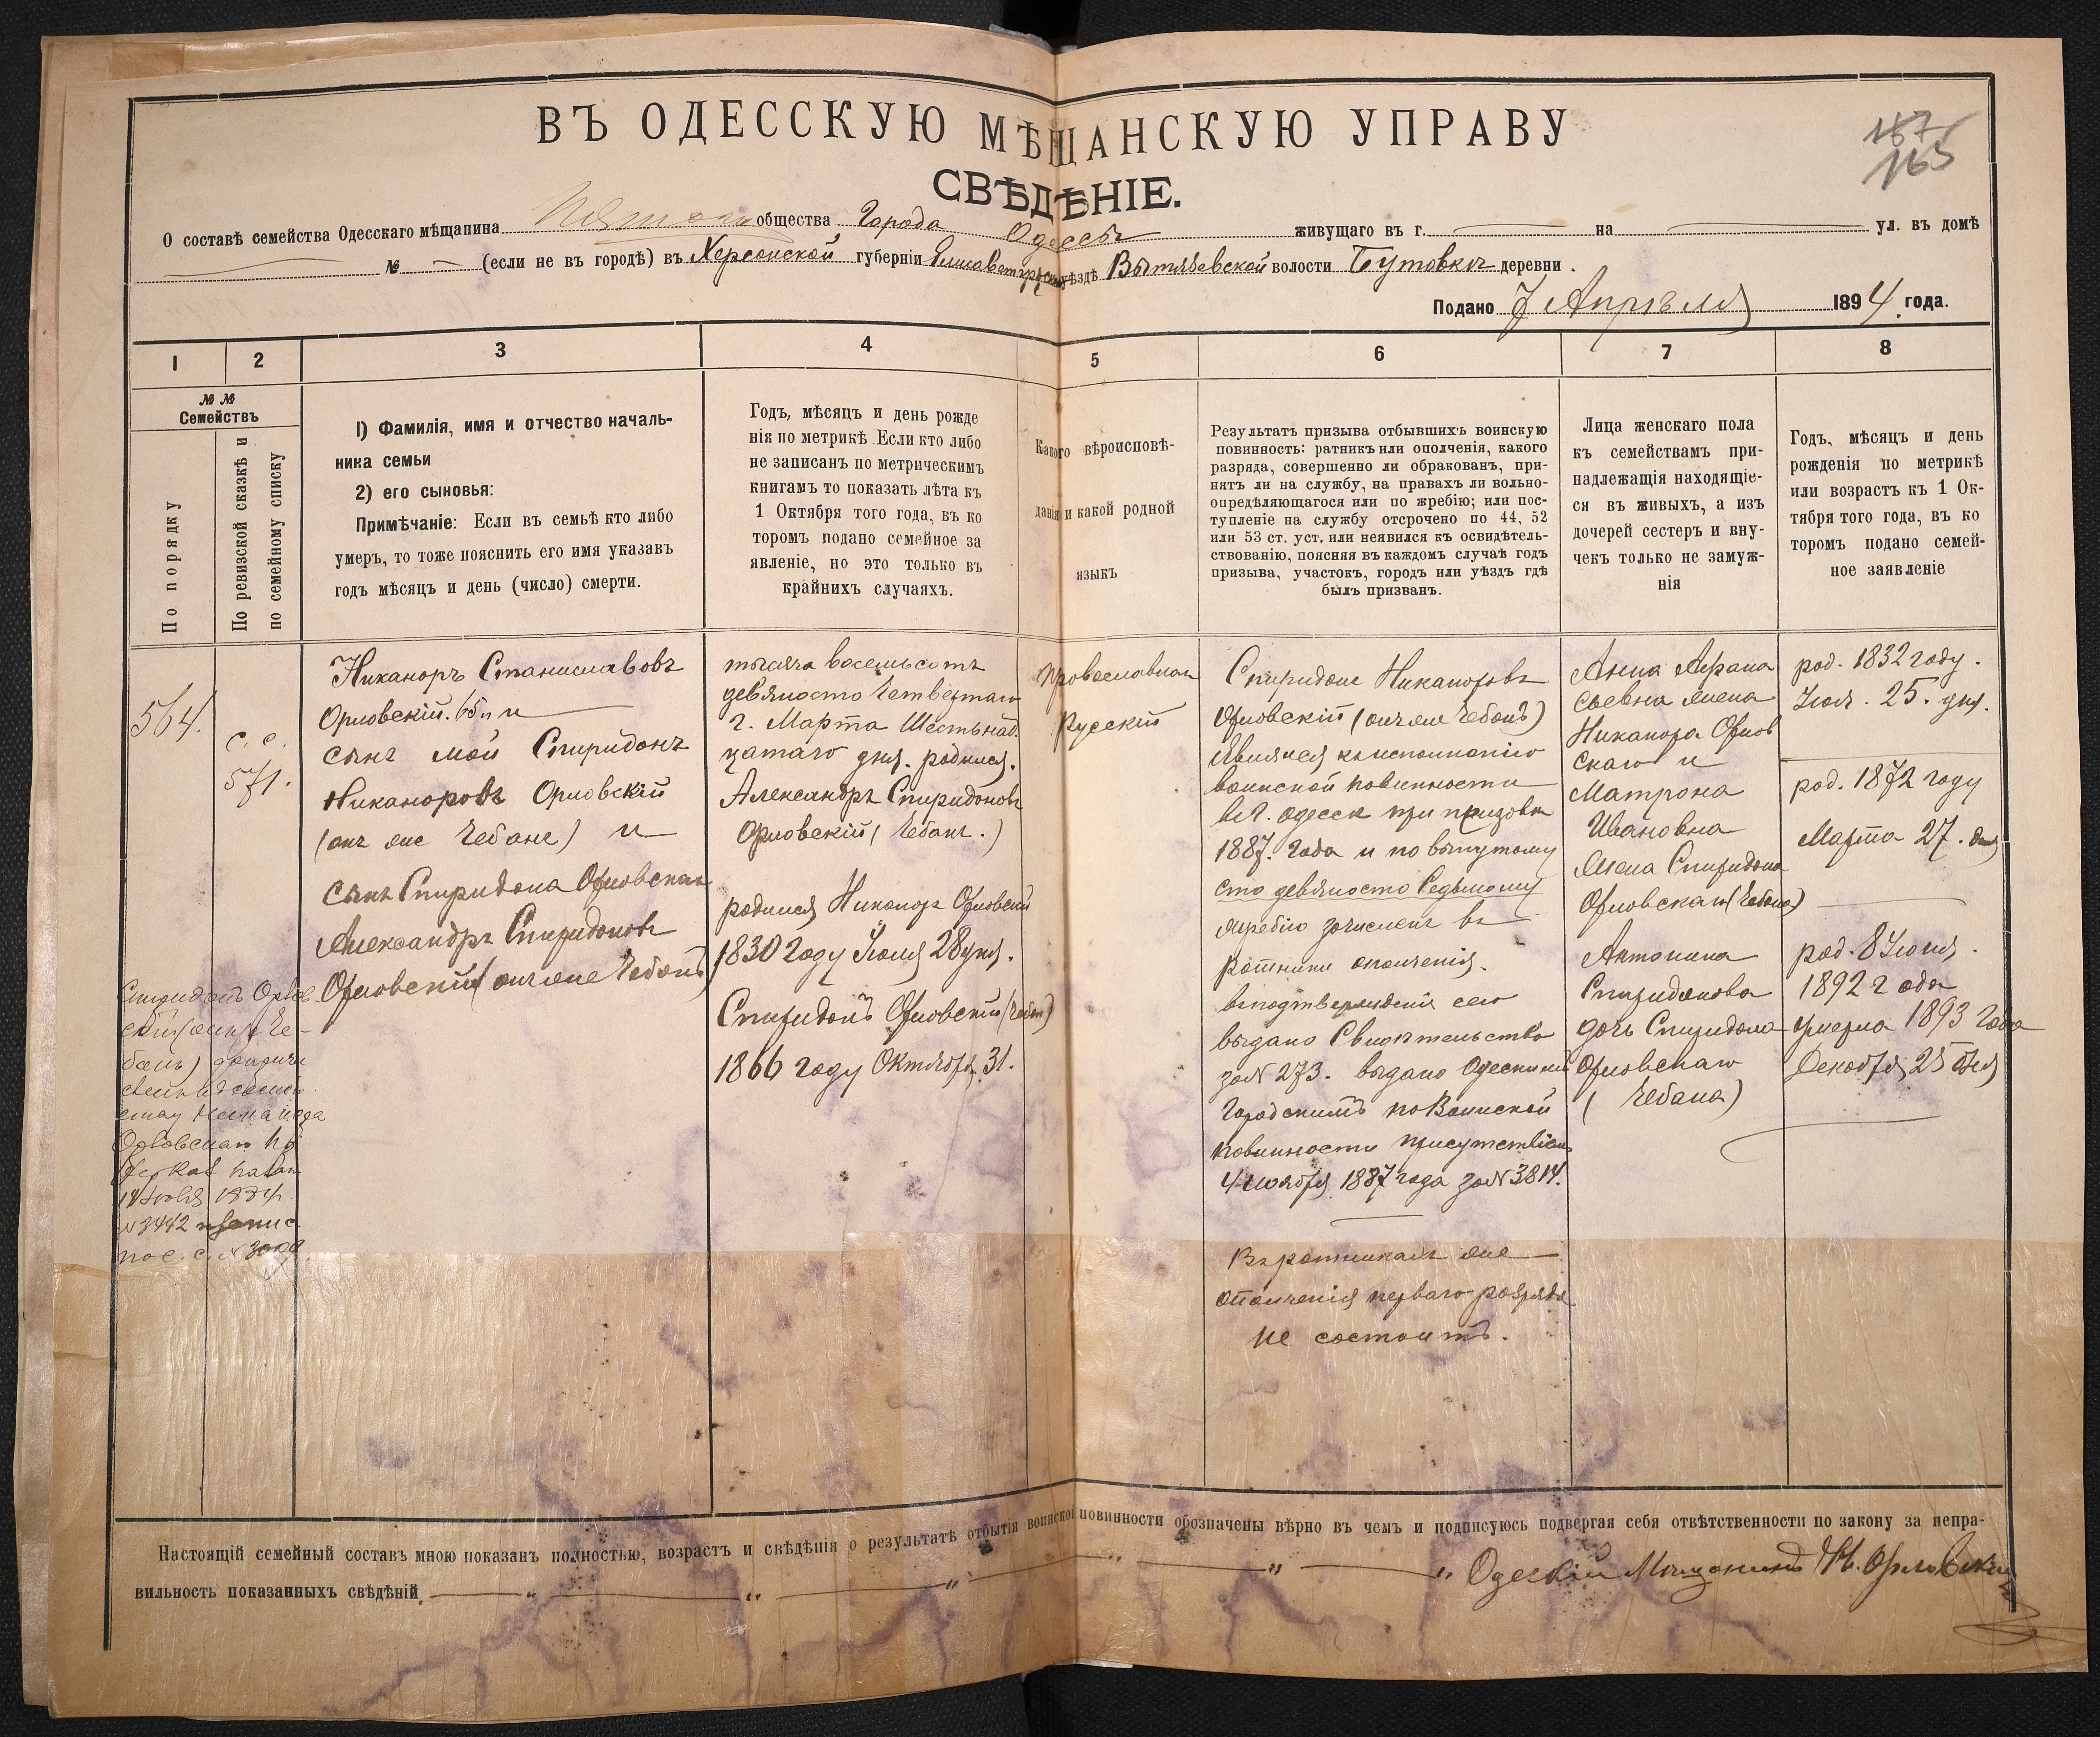 ВЪ ОДЕССКУЮ МѢЩАНСКУЮ УПРАВУ
167
165
СВѢДѢНІЕ.
О составѣ семейства Одесскаго мѣщанина общества Города Одессы живущаго въ г. на ул. въ домѣ
№ — (если не въ городѣ) въ Херсонской губерніи Елисаветградском уѣздѣ Вытязевской волости Бутовки деревни .
Подано 7 Апрѣля 1894 года.
1
2
3
4
5
6
7
8
№ №
Семействъ
По порядку
По ревизской сказкѣ и
по семейному списку
1) Фамилія, имя и отчество началь-
ника семьи
2) его сыновья:
Примѣчаніе: Если въ семьѣ кто либо
умеръ, то тоже пояснить его имя указавъ
годъ мѣсяцъ и день (число) смерти.
Годъ, мѣсяцъ и день рожде
нія по метрикѣ Если кто либо
не записанъ по метрическимъ
книгамъ то показать лѣта къ
1 Октября того года, въ ко
торомъ подано семейное за
явленіе, но это только въ
крайнихъ случаяхъ.
Какого вѣроисповѣ-
данія и какой родной
языкъ
Результатъ призыва отбывшихъ воинскую
повинность: ратникъ или ополченія, какого
разряда, совершенно ли обракованъ, при-
нятъ ли на службу, на правахъ ли вольно-
опредѣляющагося или по жребію; или пос-
тупленіе на службу отсрочено по 44, 52
или 53 ст. уст. или неявился къ освидѣтель-
ствованію, поясняя въ каждомъ случаѣ годъ
призыва, участокъ, городъ или уѣздъ гдѣ
былъ призванъ.
Лица женскаго пола
къ семействамъ при-
надлежащія находящіе-
ся въ живыхъ, а изъ
дочерей сестеръ и вну-
чекъ только не замуж-
нія
Годъ, мѣсяцъ и день
рожденія по метрикѣ
или возрастъ къ 1 Ок-
тября того года, въ ко
торомъ подано семей-
ное заявленіе
564.
с. с.
571.
Никаноръ Станиславовъ
Орловскій. 65 и
сынъ мой Спиридонъ
Никаноровъ Орловскій
(онъ же Чебане) и
сынъ Спиридона Орловскаго
Александръ Спиридоновъ
Орловскій (онъ же Чебанъ)
тысяча восемьсотъ
девяносто четвертаго
г. Марта Шестьнад
цатаго дня. родился.
Александръ Спиридоновъ
Орловскій (Чебанъ.)
родился Никаноръ Орловский
1830 году Июля 28 дня.
Спиридонъ Орловский (Чебан)
1866 году Октября 31.
Провославная
Русский
Спиридонъ Никаноровъ
Орловский (онъ же Чебанъ)
Являлся къ исполнению
воинской повинности
въ г. одессе при призыве
1887. года и по вынутому
сто девяносто Седьмому
жребию зачисленъ въ
ратники ополчения.
въ подтверждении сего
выдано Свидетельство
за № 273. выдано Одескимъ
Городскимъ по Воинской
повинности присутствием
4 ноября 1887 года за № 3814.
Въ ратникахъ же
ополчения перваго розряда
не состоитъ.
Анна Афана
сьевна жена
Никанора Орлов
скаго и
Матрона
Ивановна
жена Спиридона
Орловская (Чебана)
Антонина
Спиридонова
дочь Спиридона
Орловскаго
( Чебана)
род. 1832 году.
Июля . 25. дня.
род. 1872 году
Марта 27. дня
род. 8 Июня.
1892 года
умерла 1893 года
Декабря 25 дня
Спиридонъ Орлов
ский (онъ же Че-
банъ)
Орловскаго
1894
№ 3442
Настоящій семейный составъ мною показанъ полностью, возрастъ и свѣдѣнія о результатѣ отбытія воинской повинности обозначены вѣрно въ чемъ и подписуюсь подвергая себя отвѣтственности по закону за непра-
вильность показанныхъ свѣдѣній. Одескій Мещанинъ Н. Орловскій